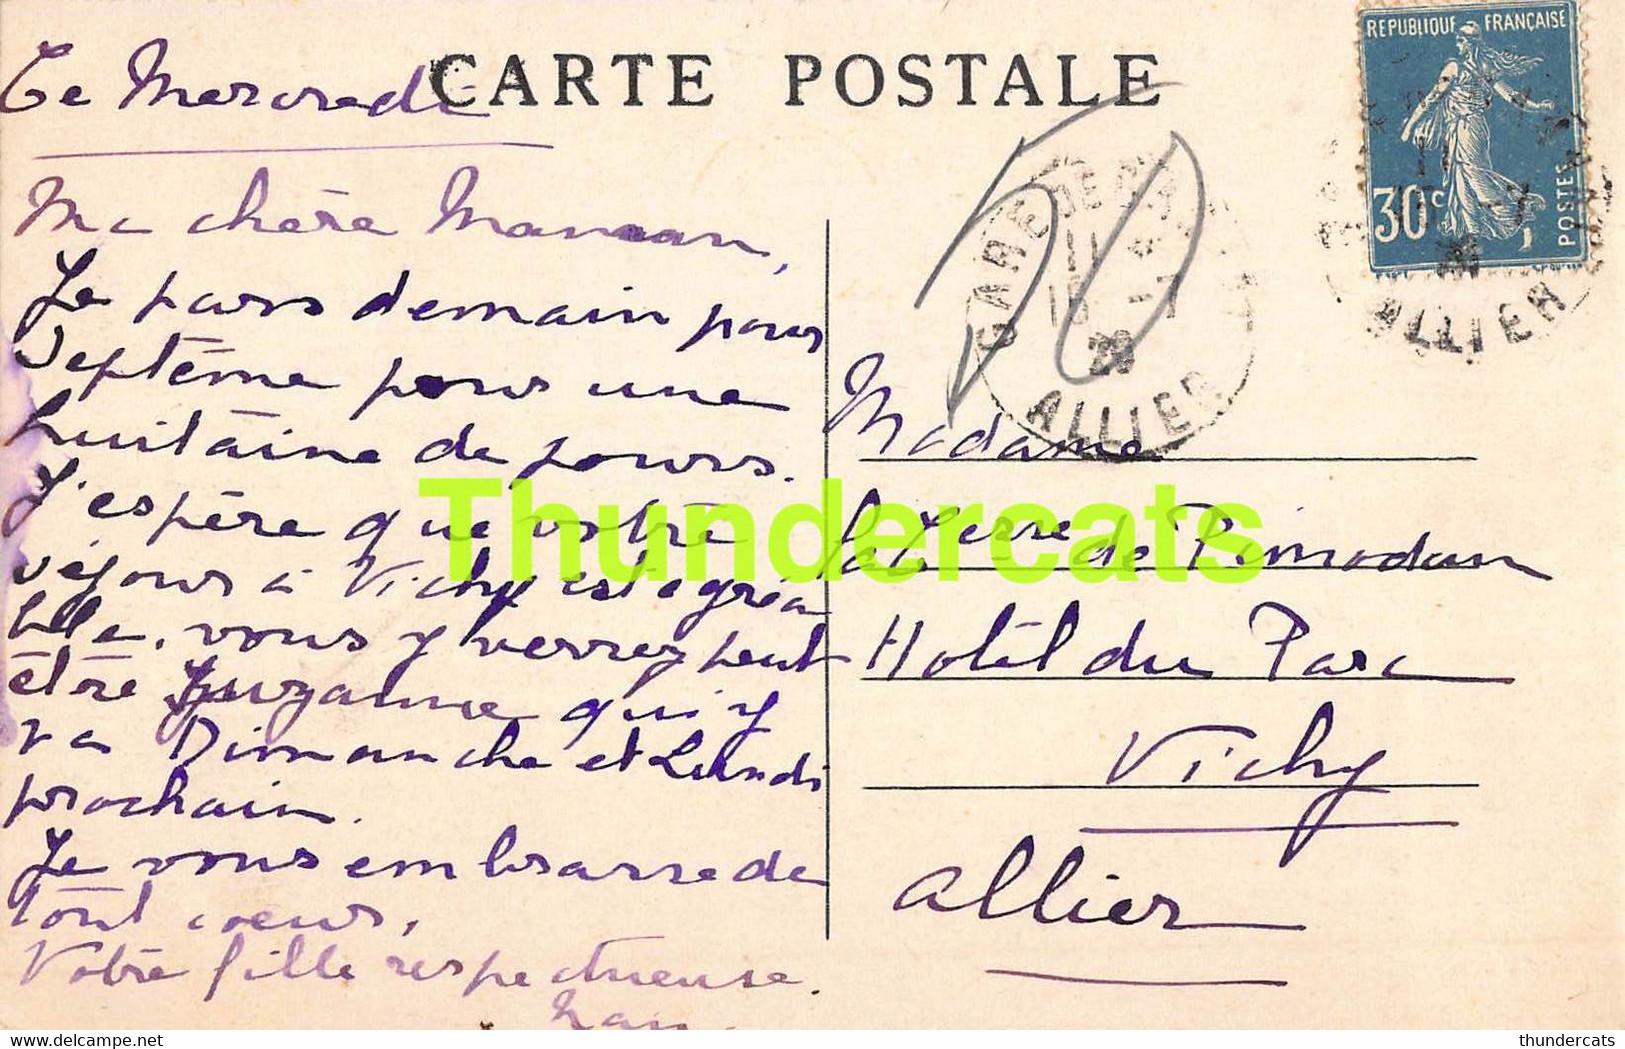 CARTE POSTALE
Ce Mercredi
Ma chère Maman,
Je pars demain pour
Septème pour une
huitaine de jours.
J'espère que votre
séjour à Vichy est agréa
ble. vous y verrez peut
être Suzanne qui y
va Dimanche et Lundi
prochain.
Je vous embrasse de
tout coeur,
Votre fille respectueuse.
REPUBLIQUE FRANÇAISE
30c
POSTES
ALLIER
GARE DE
11
28
ALLIER
Madame
de Pimodan
Hotel du Parc
Vichy
Allier
Thundercats
thundercats